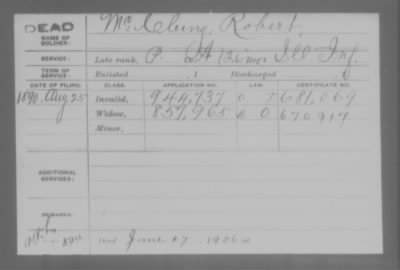 DEAD
NAME OF SOLDIER: McClung, Robert
SERVICE: Late rank, P. Reg't Ill Inf.
TERM OF SERVICE: Enlisted , 1 Discharged
DATE OF FILING. CLASS. APPLICATION NO. LAW. CERTIFICATE NO.
1890, Aug 25 Invalid, 944,737 681,069
Widow, 857,965 670917
Minor,
ADDITIONAL SERVICES:
REMARKS:
Died June 27, 1906